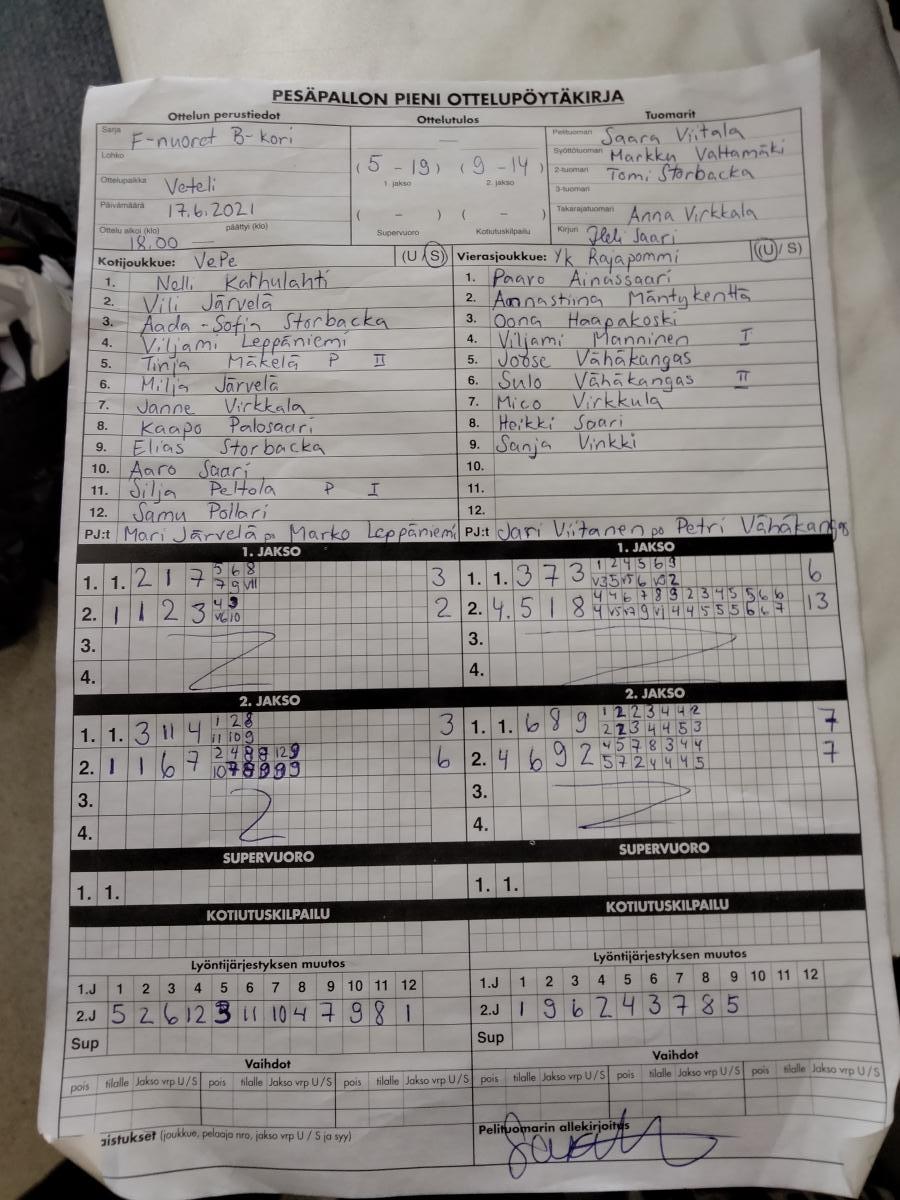 PESÄPALLON PIENI OTTELUPÖYTÄKIRJA
Ottelun perustiedot Ottelutulos Tuomarit
Sarja F-nuoret B-kori
Lohko
Ottelupaikka Veteli
Päivämäärä 17.6.2021
Ottelu alkoi (klo) päättyi (klo)
18.00 —
—
( 5 - 19 ) ( 9 - 14 )
1. jakso 2. jakso
( - ) ( - )
Supervuoro Kotiutuskilpailu
Pelituomari Saara Viitala
Syöttötuomari Markku Valtamäki
2-tuomari Tomi Storbacka
3-tuomari
Takarajatuomari Anna Virkkala
Kirjuri Heli Saari
Kotijoukkue: VePe (U/S)
1. Nelli Karhulahti
2. Vili Järvelä
3. Aada-Sofia Storbacka
4. Viljami Leppäniemi
5. Tinja Mäkelä P II
6. Milja Järvelä
7. Janne Virkkala
8. Kaapo Palosaari
9. Elias Storbacka
10. Aaro Saari
11. Silja Peltola P I
12. Samu Pollari
PJ:t Mari Järvelä po Marko Leppäniemi
Vierasjoukkue: Yk Rajapommi (U/S)
1. Paavo Ainassaari
2. Annastiina Mäntykenttä
3. Oona Haapakoski
4. Viljami Manninen I
5. Joose Vähäkangas
6. Sulo Vähäkangas II
7. Mico Virkkula
8. Heikki Saari
9. Sanja Vinkki
10.
11.
12.
PJ:t Jari Viitanen po Petri Vähäkangas
1. JAKSO
1. 1. 2 1 7 5 6 8 3
7 9 VII
2. 1 1 2 3 4 3 2
V6 10
3.
4.
1. JAKSO
1. 1. 3 7 3 1 2 4 5 6 9 6
V3 5 V5 6 V 2
2. 4. 5 1 8 4 4 6 7 8 9 2 3 4 5 5 6 6 13
4 V5 V7 9 V1 4 4 5 5 5 6 6 7
3.
4.
2. JAKSO
1. 1. 3 11 4 1 2 8 3
11 10 9
2. 1 1 6 7 2 4 8 9 12 9 6
10 7 8 9 9 9
3.
4.
2. JAKSO
1. 1. 6 8 9 1 2 2 3 4 4 2 7
2 2 3 4 4 5 3
2. 4 6 9 2 4 5 7 8 3 4 4 7
5 7 2 4 4 4 5
3.
4.
SUPERVUORO
1. 1.
SUPERVUORO
1. 1.
KOTIUTUSKILPAILU
KOTIUTUSKILPAILU
Lyöntijärjestyksen muutos
1.J 1 2 3 4 5 6 7 8 9 10 11 12
2.J 5 2 6 12 3 11 10 4 7 9 8 1
Sup
Lyöntijärjestyksen muutos
1.J 1 2 3 4 5 6 7 8 9 10 11 12
2.J 1 9 6 2 4 3 7 8 5
Sup
Vaihdot
pois tilalle Jakso vrp U/S pois tilalle Jakso vrp U/S pois tilalle Jakso vrp U/S
Vaihdot
pois tilalle Jakso vrp U/S pois tilalle Jakso vrp U/S pois tilalle Jakso vrp U/S
aistukset (joukkue, pelaaja nro, jakso vrp U / S ja syy)
Pelituomarin allekirjoitus